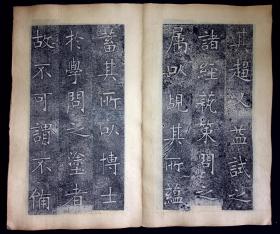 其超然蓋試之
諸經就策問之
属以觇其所蕴
蓄其所以博士
於學問之塗者
故不可謂不備